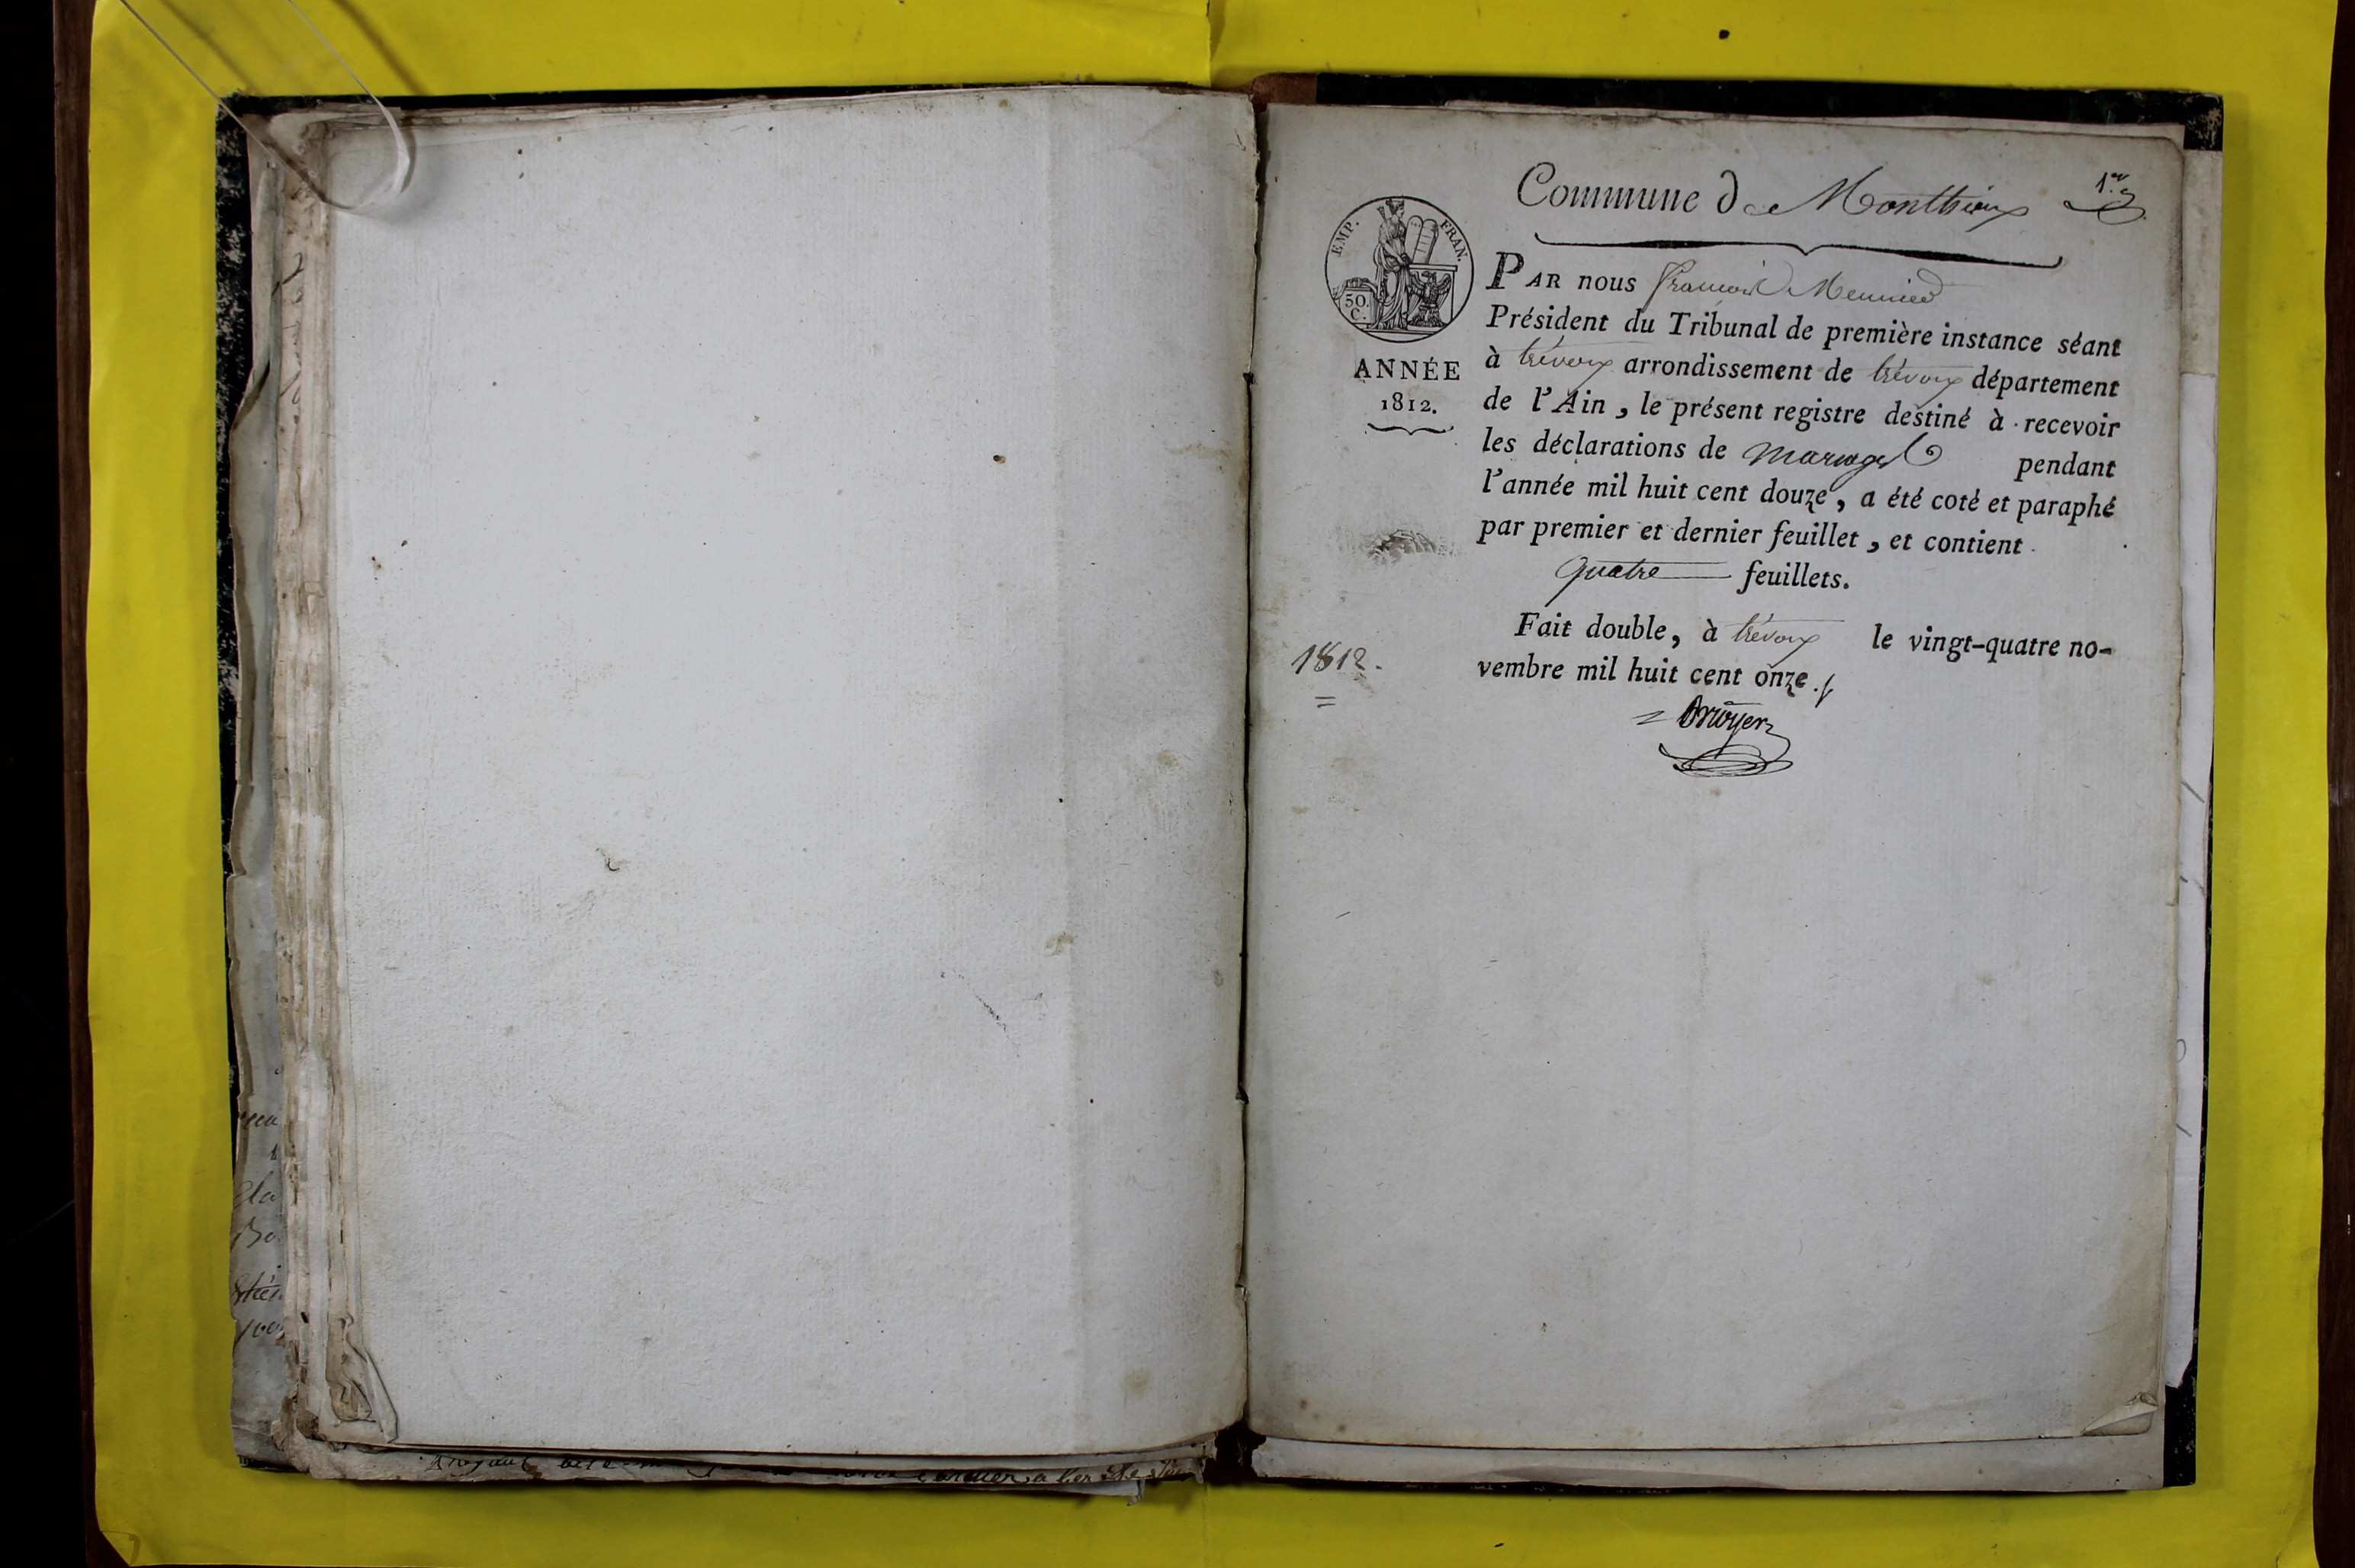 Commune de Monthieux
1er
EMP. FRAN.
50.
C.
PAR nous François Meunier
Président du Tribunal de première instance séant
à trévoux arrondissement de trévoux département
ANNÉE
1812.
de l'Ain, le présent registre destiné à recevoir
les déclarations de Mariages pendant
l'année mil huit cent douze, a été coté et paraphé
par premier et dernier feuillet, et contient
quatre feuillets.
Fait double, à trévoux le vingt-quatre no-
vembre mil huit cent onze.
1812.